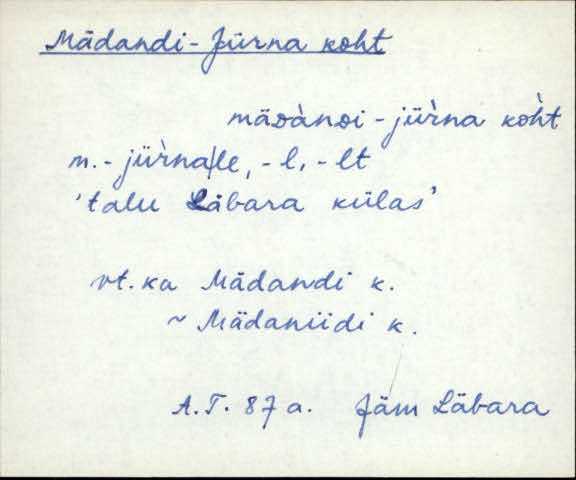 Mädandi-Jürna koht
mäᴅànᴅi - jür̀na koh̀t
m. - jür̀na|le, -l, -lt
'talu Läbara külas'
vt. ka Mädandi k.
~ Mädaniidi k.
A.T. 87 a. Jäm Läbara